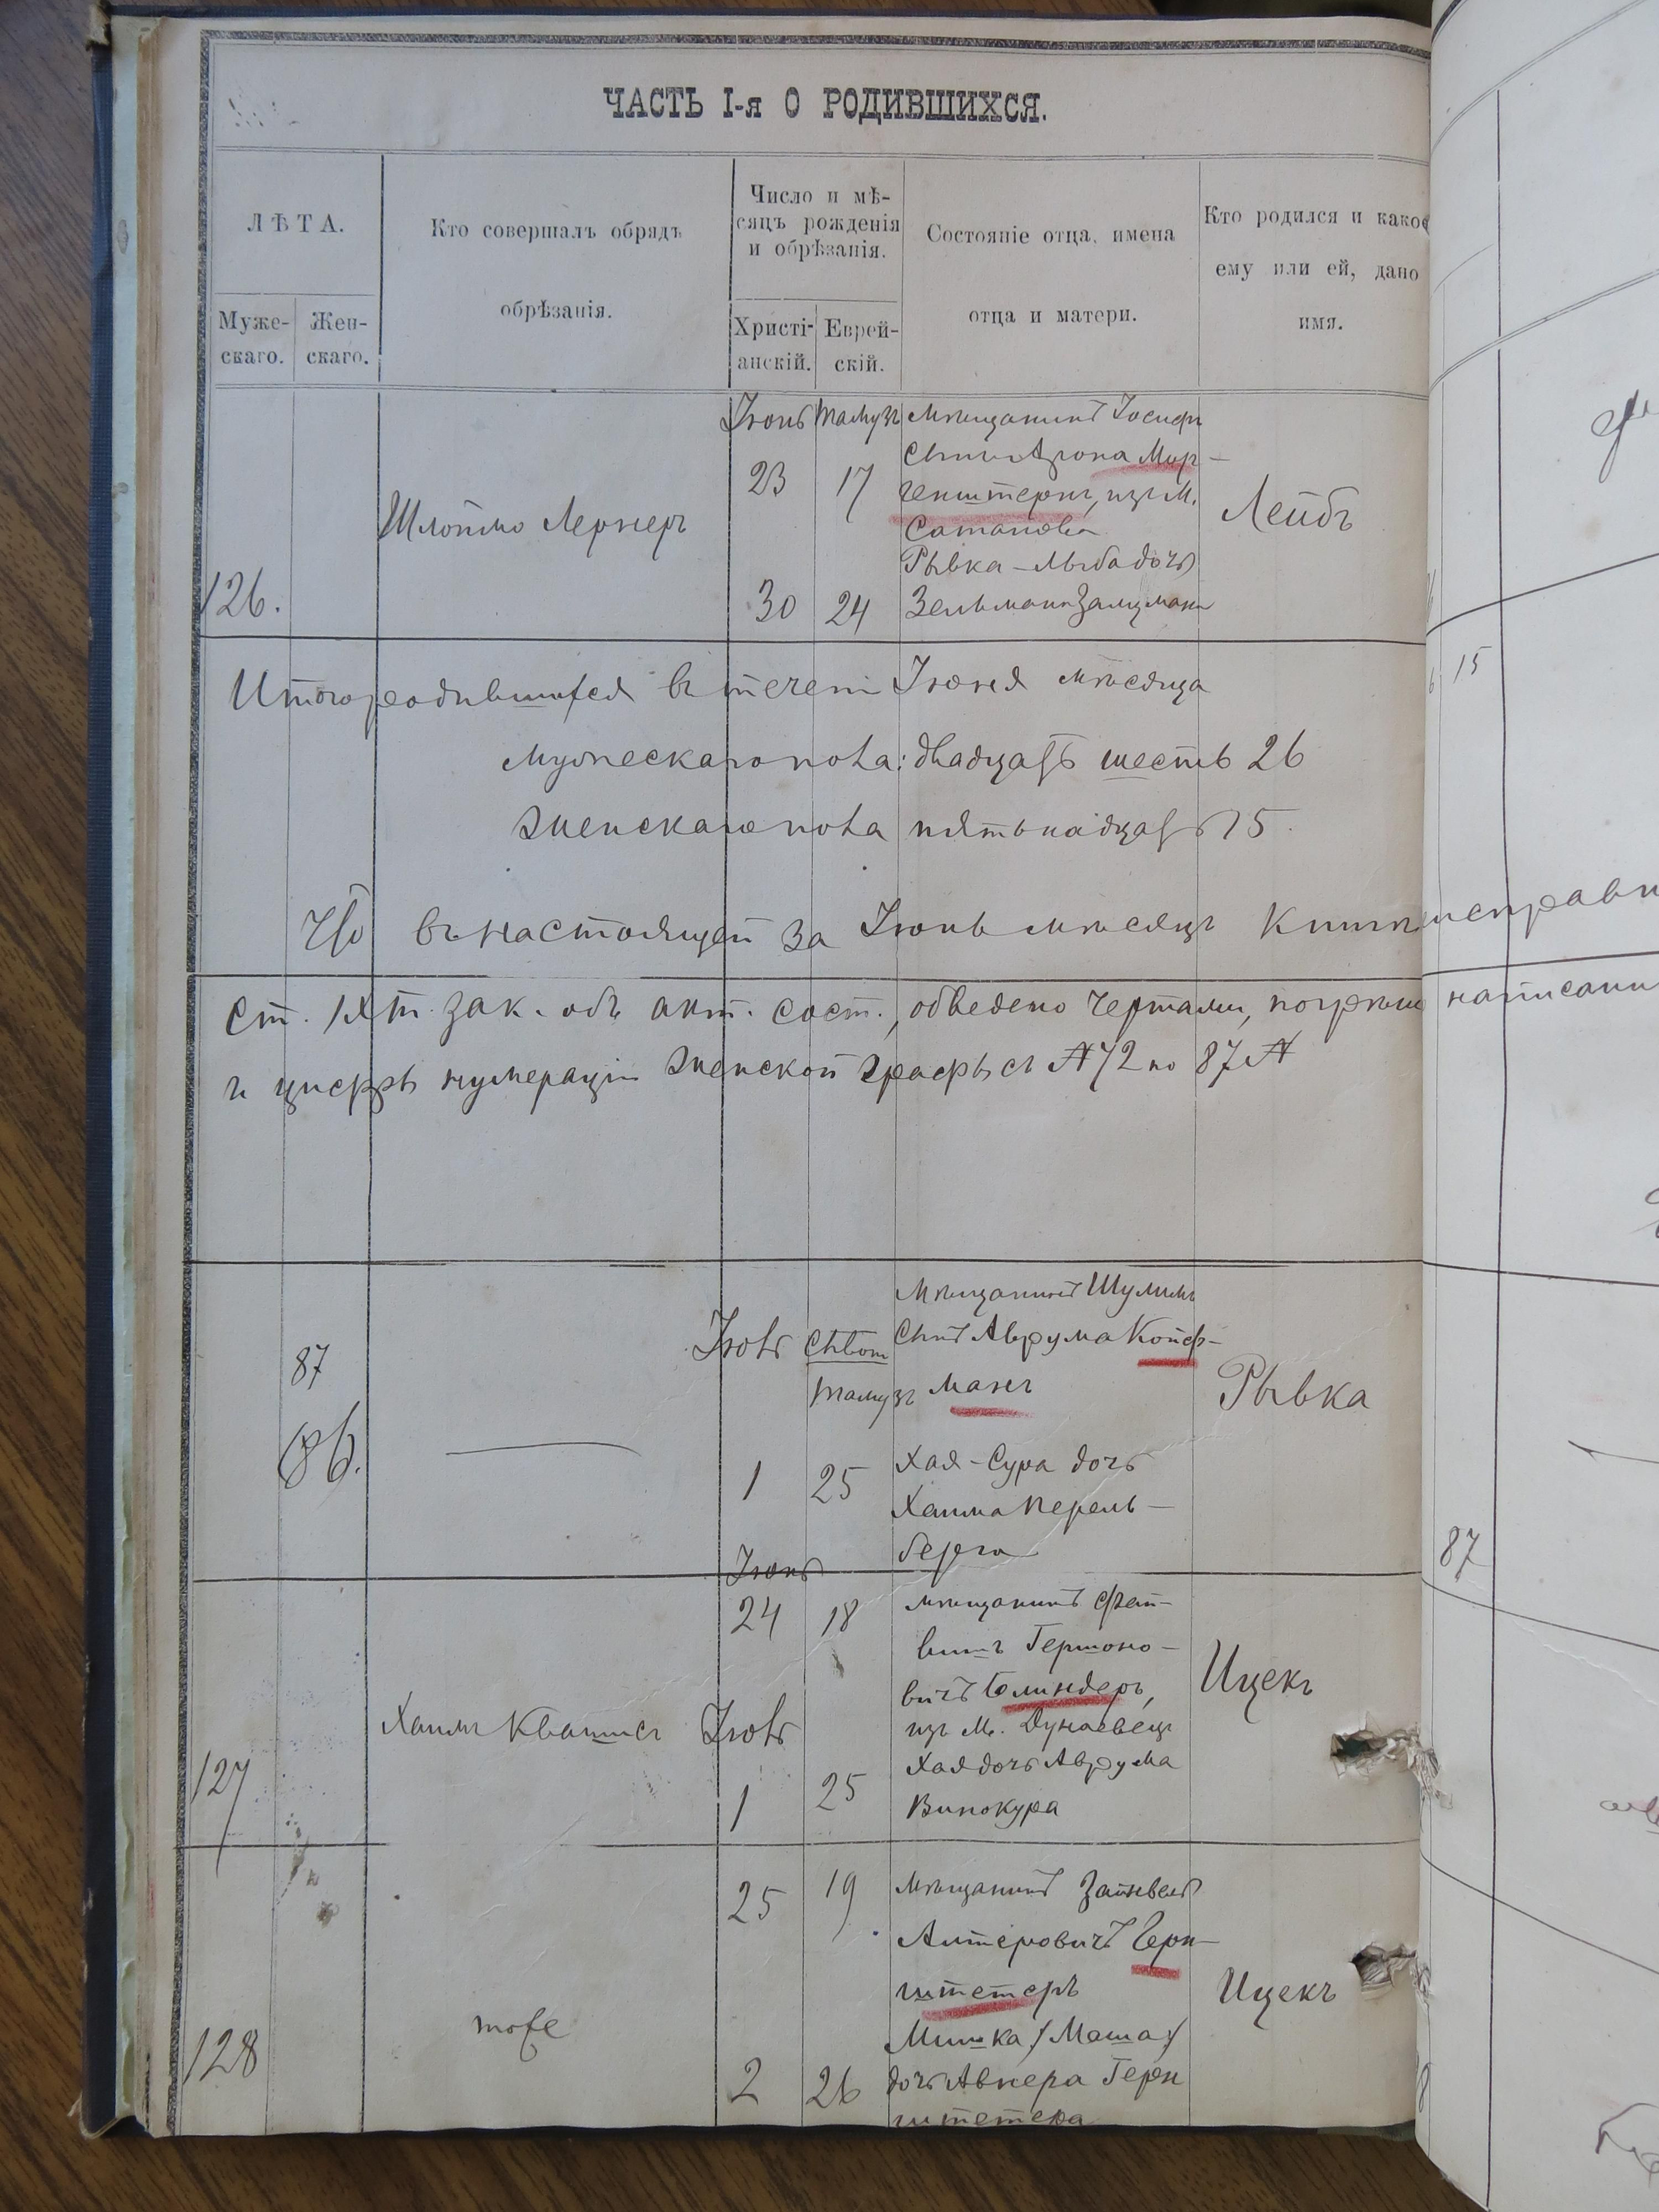 ЧАСТЬ I-я О РОДИВШИХСЯ.
ЛѢТА.
Муже-
скаго.
Жен-
скаго.
Кто совершалъ обрядъ
обрѣзанія.
Число и мѣ-
сяцъ рожденія
и обрѣзанія.
Христі-
анскій.
Еврей-
скій.
Состояніе отца, имена
отца и матери.
Кто родился и какое
ему или ей, дано
имя.
126.
Шлоймо Лернеръ
Іюнь Тамузъ
23 17
30 24
Мѣщанинъ Іосифъ
сынъ Арона Мор-
генштернъ, изъ м.
Сатанова
Рывка-Люба дочь
Зельмана Залцмана
Лейбъ
Итого родившихся въ течен Іюня мѣсяца
Мужескаго пола: двадцать шесть 26
Женскаго пола пятьнадцать 15.
Что въ настоящей за Іюнь мѣсяцъ книгѣ исправл
ст. IX т. зак. объ акт. сост., обведено чертами, написани
и цифръ нумераціи женской графы съ № 72 по 87 №
87
86.
Іюль
Тамузъ
1 25
Мѣщанинъ Шулимъ
сынъ Аврума Койф-
манъ
Хая-Сура дочь
Хаима Перель-
берга
Рывка
127
Хаимъ Квашисъ
Іюнь
24 18
Іюль
1 25
Мѣщанинъ Фай-
вишъ Гершоно-
вичъ
изъ м. Дунаевецъ
Хая дочь Аврума
Винокура
Ицекъ
128
тоже
25 19
2 26
Мѣщанинъ Зайвель
Алтеровичъ Берн-
штетеръ
Мишка /Маша/
дочь Авнера Герн
штетера
Ицекъ
15
87